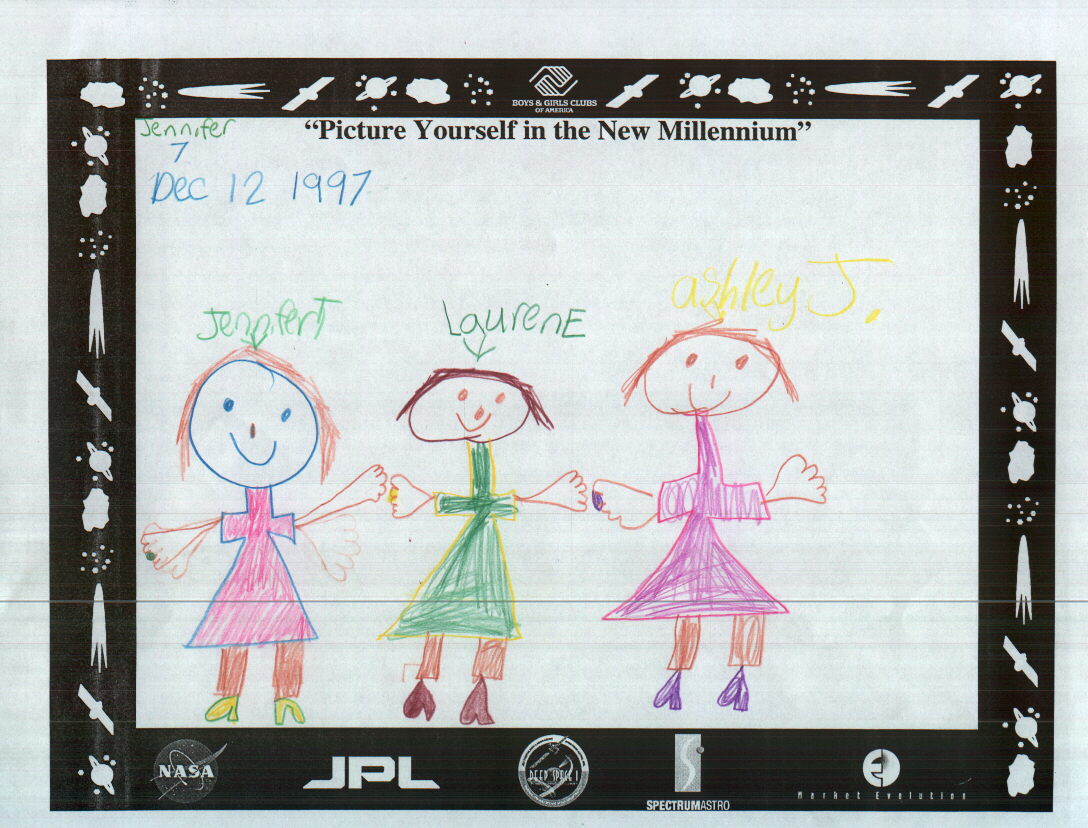 BOYS & GIRLS CLUBS
OF AMERICA
“Picture Yourself in the New Millennium”
Jennifer
7
Dec 12 1997
JenniferT
LaurenE
ashley J.
NASA
JPL
DEEP SPACE 1
SPECTRUMASTRO
Market Evolution